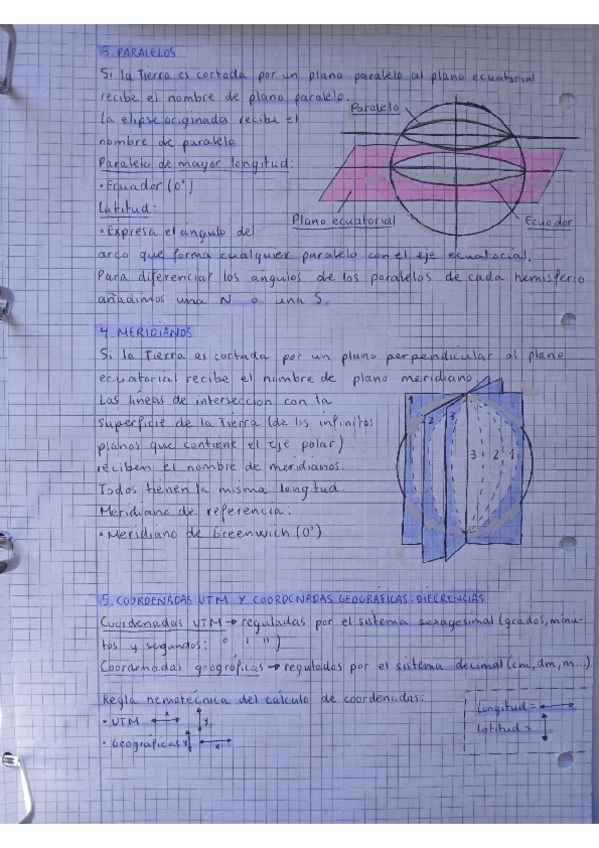 3. PARALELOS
Si la Tierra es cortada por un plano paralelo al plano ecuatorial
recibe el nombre de plano paralelo.
Paralelo
La elipse originada recibe el
nombre de paralelo.
Paralelo de mayor longitud:
• Ecuador (0°)
Latitud:
Plano ecuatorial
Ecuador
• Expresa el angulo del
arco que forma cualquier paralelo con el eje ecuatorial.
Para diferenciar los angulos de los paralelos de cada hemisferio
añadimos una N o una S.
4. MERIDIANOS
Si la Tierra es cortada por un plano perpendicular al plano
ecuatorial recibe el nombre de plano meridiano.
Las líneas de interseccion con la
superficie de la Tierra (de los infinitos
planos que contiene el eje polar)
reciben el nombre de meridianos.
Todos tienen la misma longitud.
Meridiano de referencia:
• Meridiano de Greenwich (0°)
1 2 3
3 2 1
5. COORDENADAS UTM Y COORDENADAS GEOGRÁFICAS: DIFERENCIAS
Coordenadas UTM → reguladas por el sistema sexagesimal (grados, minu-
tos y segundos: ° ' '')
Coordenadas geográficas → reguladas por el sistema decimal (cm, dm, m...)
Regla nemotécnica del calculo de coordenadas:
• UTM x y
• Geográficas y x
Longitud = ↔
Latitud = ↕